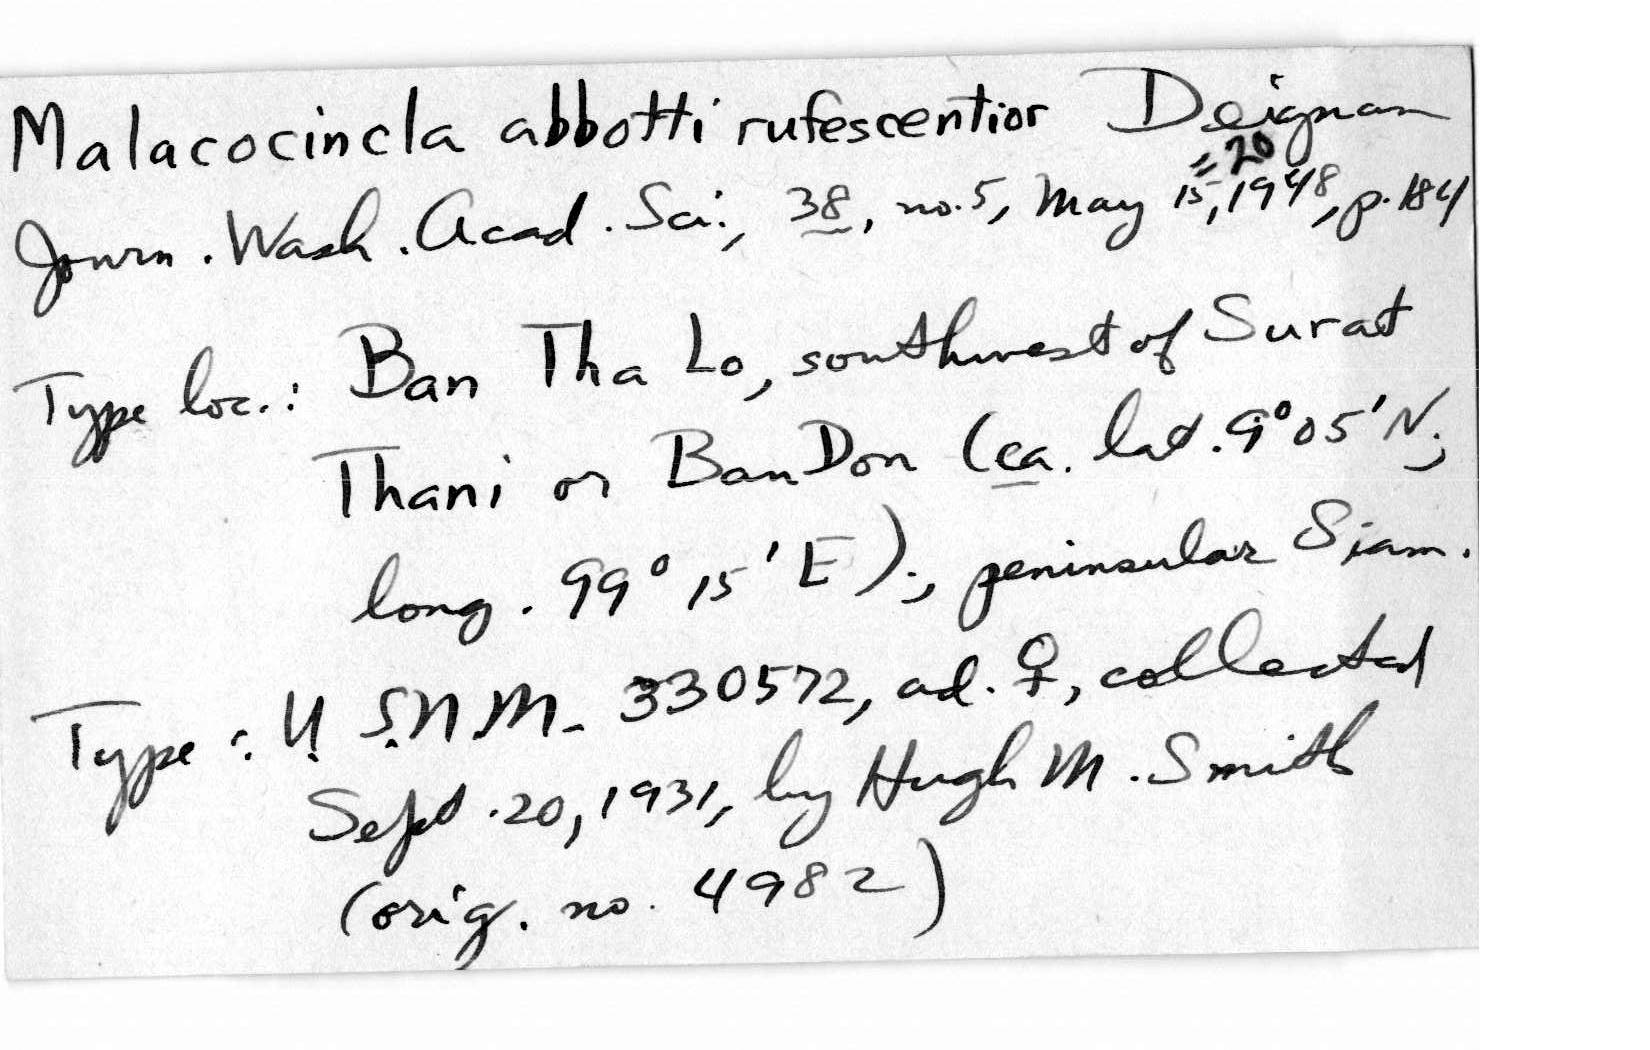 Malacocincla abbotti rufescentior Deignan
=20
Journ. Wash. Acad. Sci., 38, no. 5, May 15, 1948, p. 184
Type loc.: Ban Tha Lo, southwest of Surat
Thani or Ban Don (ca. lat. 9°05'N;
long. 99°15'E);, peninsular Siam.
Type: U.S.N.M. 330572, ad. ♀, collected
Sept. 20, 1931, by Hugh M. Smith
(orig. no. 4982)